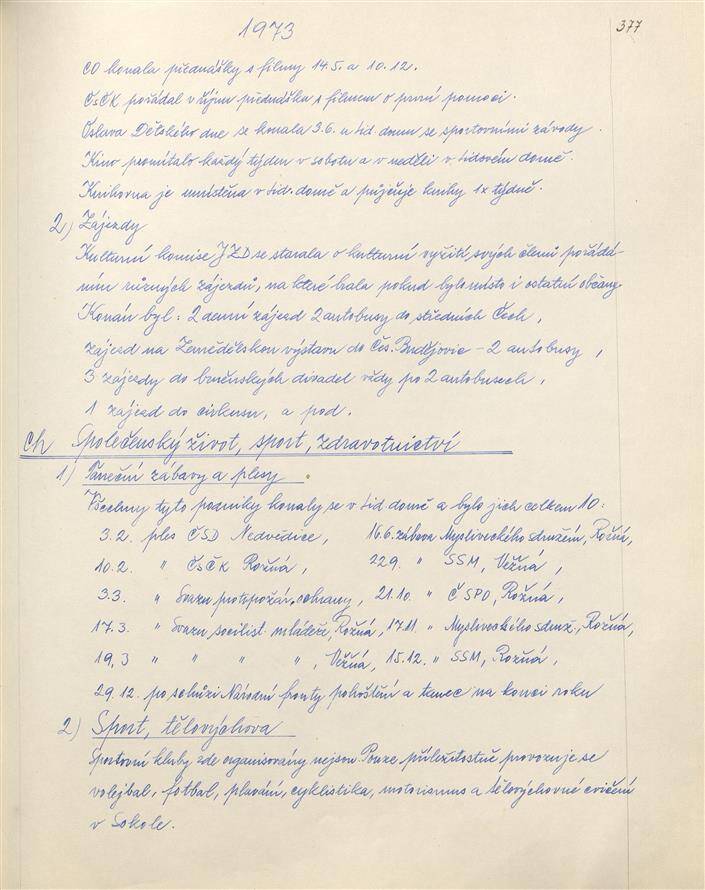 1973
377
CO konala přednášky s filmy 14.5. a 10.12.
ČsČK pořádal v říjnu přednášku s filmem o první pomoci.
Oslava Dětského dne se konala 3.6. u lid. domu se sportovními závody.
Kino promítalo každý týden v sobotu a v neděli v lidovém domě.
Knihovna je umístěna v lid. domě a půjčuje knihy 1x týdně.
2) Zájezdy
Kulturní komise JZD se starala o kulturní vyžití svých členů pořádá-
ním různých zájezdů, na které brala pokud bylo místo i ostatní občany.
Konán byl: 2 denní zájezd 2 autobusy do středních Čech,
zájezd na Zemědělskou výstavu do Čes. Budějovic - 2 autobusy,
3 zájezdy do brněnských divadel vždy po 2 autobusech,
1 zájezd do cirkusu, a pod.
ch Společenský život, sport, zdravotnictví
1) Taneční zábavy a plesy
Všechny tyto podniky konaly se v lid. domě a bylo jich celkem 10:
3.2. ples ČSD Nedvědice, 16.6. zábava Mysliveckého sdružení, Rožná,
10.2. " ČsČK Rožná, 22.9. " SSM, Věžná,
3.3. " Svazu protipožár. ochrany, 21.10. " ČSPO, Rožná,
17.3. " Svazu socilist. mládeže, Rožná, 17.11. " Mysliveckého sdruž., Rožná,
19.3 " " " ", Věžná, 15.12. " SSM, Rožná,
29.12. po schůzi Národní fronty pohoštění a tanec na konci roku
2) Sport, tělovýchova
Sportovní kluby zde organisovány nejsou. Pouze příležitostně provozuje se
volejbal, fotbal, plavání, cyklistika, motorismus a tělovýchovné cvičení
v Sokole.